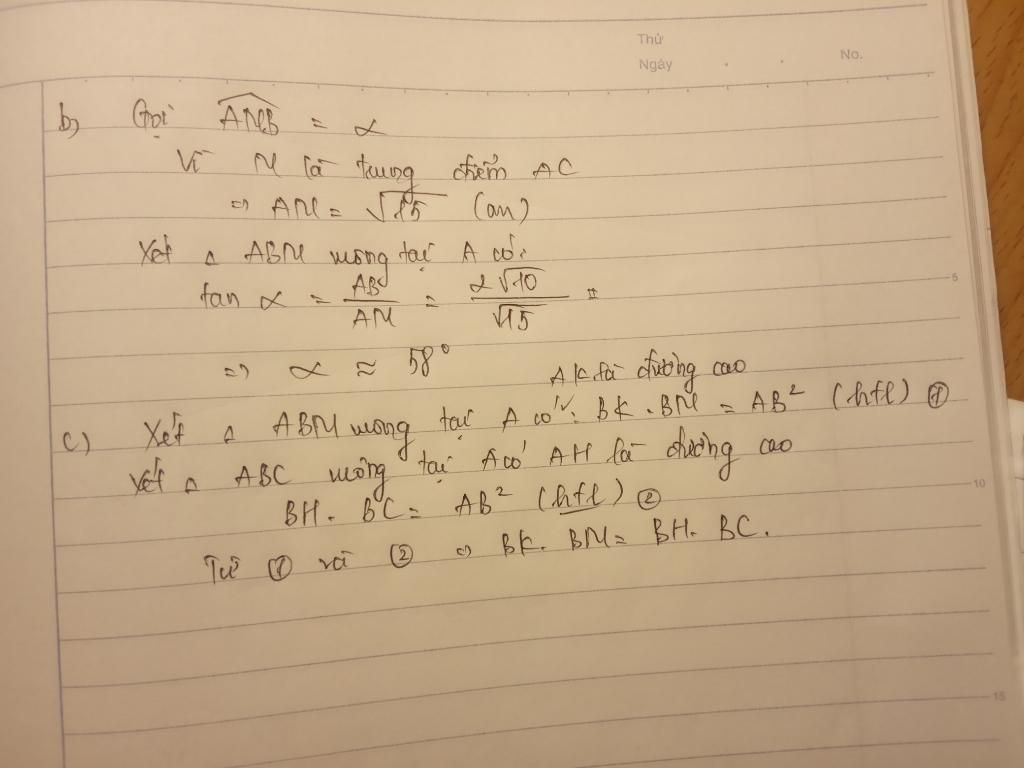 Thứ
Ngày . . No.
b) Gọi \widehat{AMB} = α
Vì M là trung điểm AC
=> AM = √15 (cm)
Xét Δ ABM vuông tại A có:
tan α = AB/AM = 2√10/√15
=> α ≈ 58°
AK là đường cao
c) Xét Δ ABM vuông tại A có: BK . BM = AB² (htl) ①
Xét Δ ABC vuông tại A có AH là đường cao
BH . BC = AB² (htl) ②
Từ ① và ② => BK . BM = BH . BC.
5
10
15